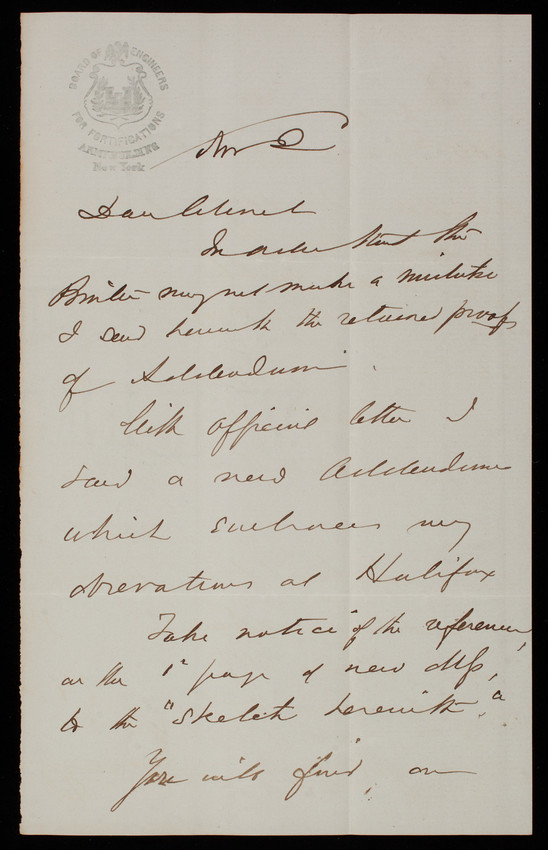 BOARD OF ENGINEERS
FOR FORTIFICATIONS
New York
Dear Colonel
In order that the
Printer may not make a mistake
I send herewith the returned proofs
of Addendum.
With official letter I
send a new Addendum
which embraces my
observations at Halifax
Take notice of the reference,
on the 1st page of new MSs,
to the "Sketch herewith."
You will find, on